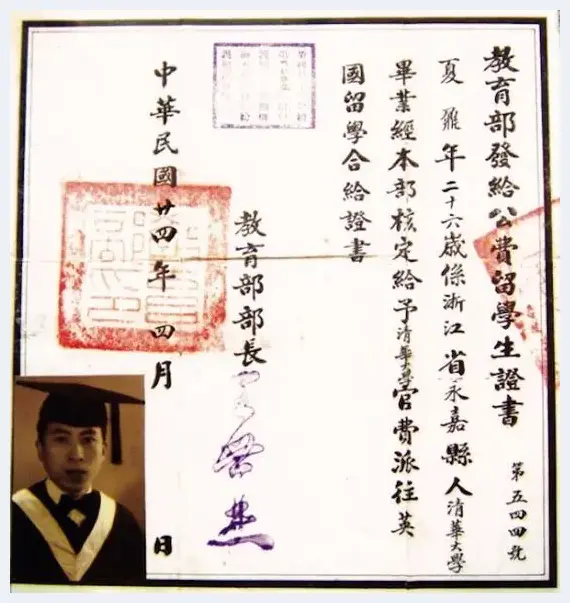 教育部發給公費留學生證書
第五四四號
夏鼐年二十六歲係浙江省永嘉縣人清華大學
畢業經本部核定給予清華大學官費派往英
國留學合給證書
教育部部長
中華民國廿四年四月 日